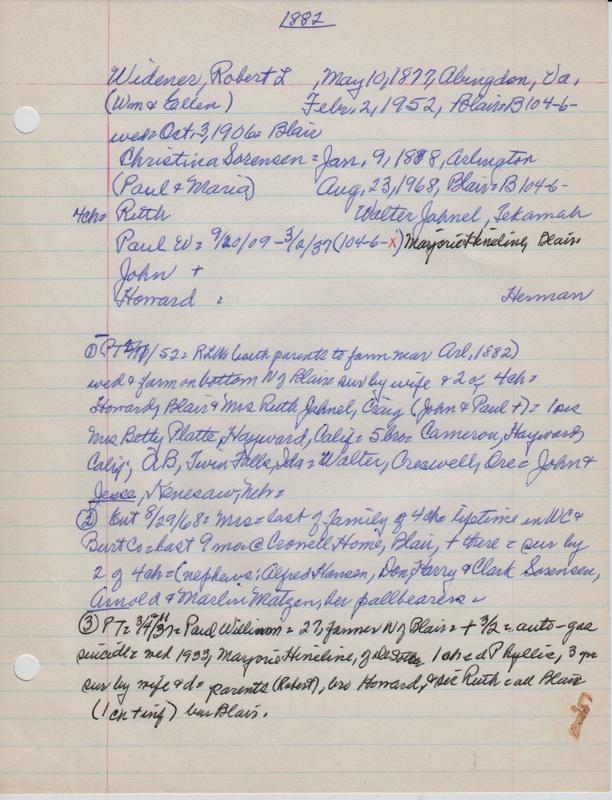 1882
Widener, Robert L , May 10, 1877, Abingdon, Va,
(Wm & Ellen) Febr, 2, 1952, Blair=B104-6-
wed= Oct, 3, 1906= Blair
Christina Sorensen = Jan, 9, 1888, Arlington
(Paul & Maria) Aug, 23, 1968, Blair=B104-6-
4ch= Ruth Walter Jahnel, Tekamah
Paul W= 9/20/09 - 3/2/37 (104-6-x) Marjorie Hineline, Blair
John +
Howard = Herman
① PT /52= RLW (with parents to farm near Arl, 1882)
wed & farm on bottom N of Blair= sur by wife & 2 of 4ch=
Howard, Blair & Mrs Ruth Jahnel, Craig (John & Paul +) = 1 sis
Mrs Betty Platte, Hayward, Calif= 5 bro= Cameron, Hayward,
Calif; A.B, Twin Falls, Ida= Walter, Creswell, Ore= John &
Jesse, Kenesaw, Nebr=
② Ent 8/29/68= Mrs= last of family of 4ch= lifetime in WC &
Burt Co= last 9 mos @ Crowell Home, Blair, + there = sur by
2 of 4ch= (nephews: Alfred Hansen, Don, Harry & Clark Sorensen,
Arnold & Marlin Matzen, her pallbearers=
③ PT= 3/4/37= Paul William= 27, farmer N of Blair= + 3/2= auto-gas
suicide= wed 1933, Marjorie Hineline, of 1 ch= d Phyllis, 3 yr=
sur by wife & d= parents (Robert), bro Howard, & sis Ruth= all Blair
(1 ch + inf) bur Blair.